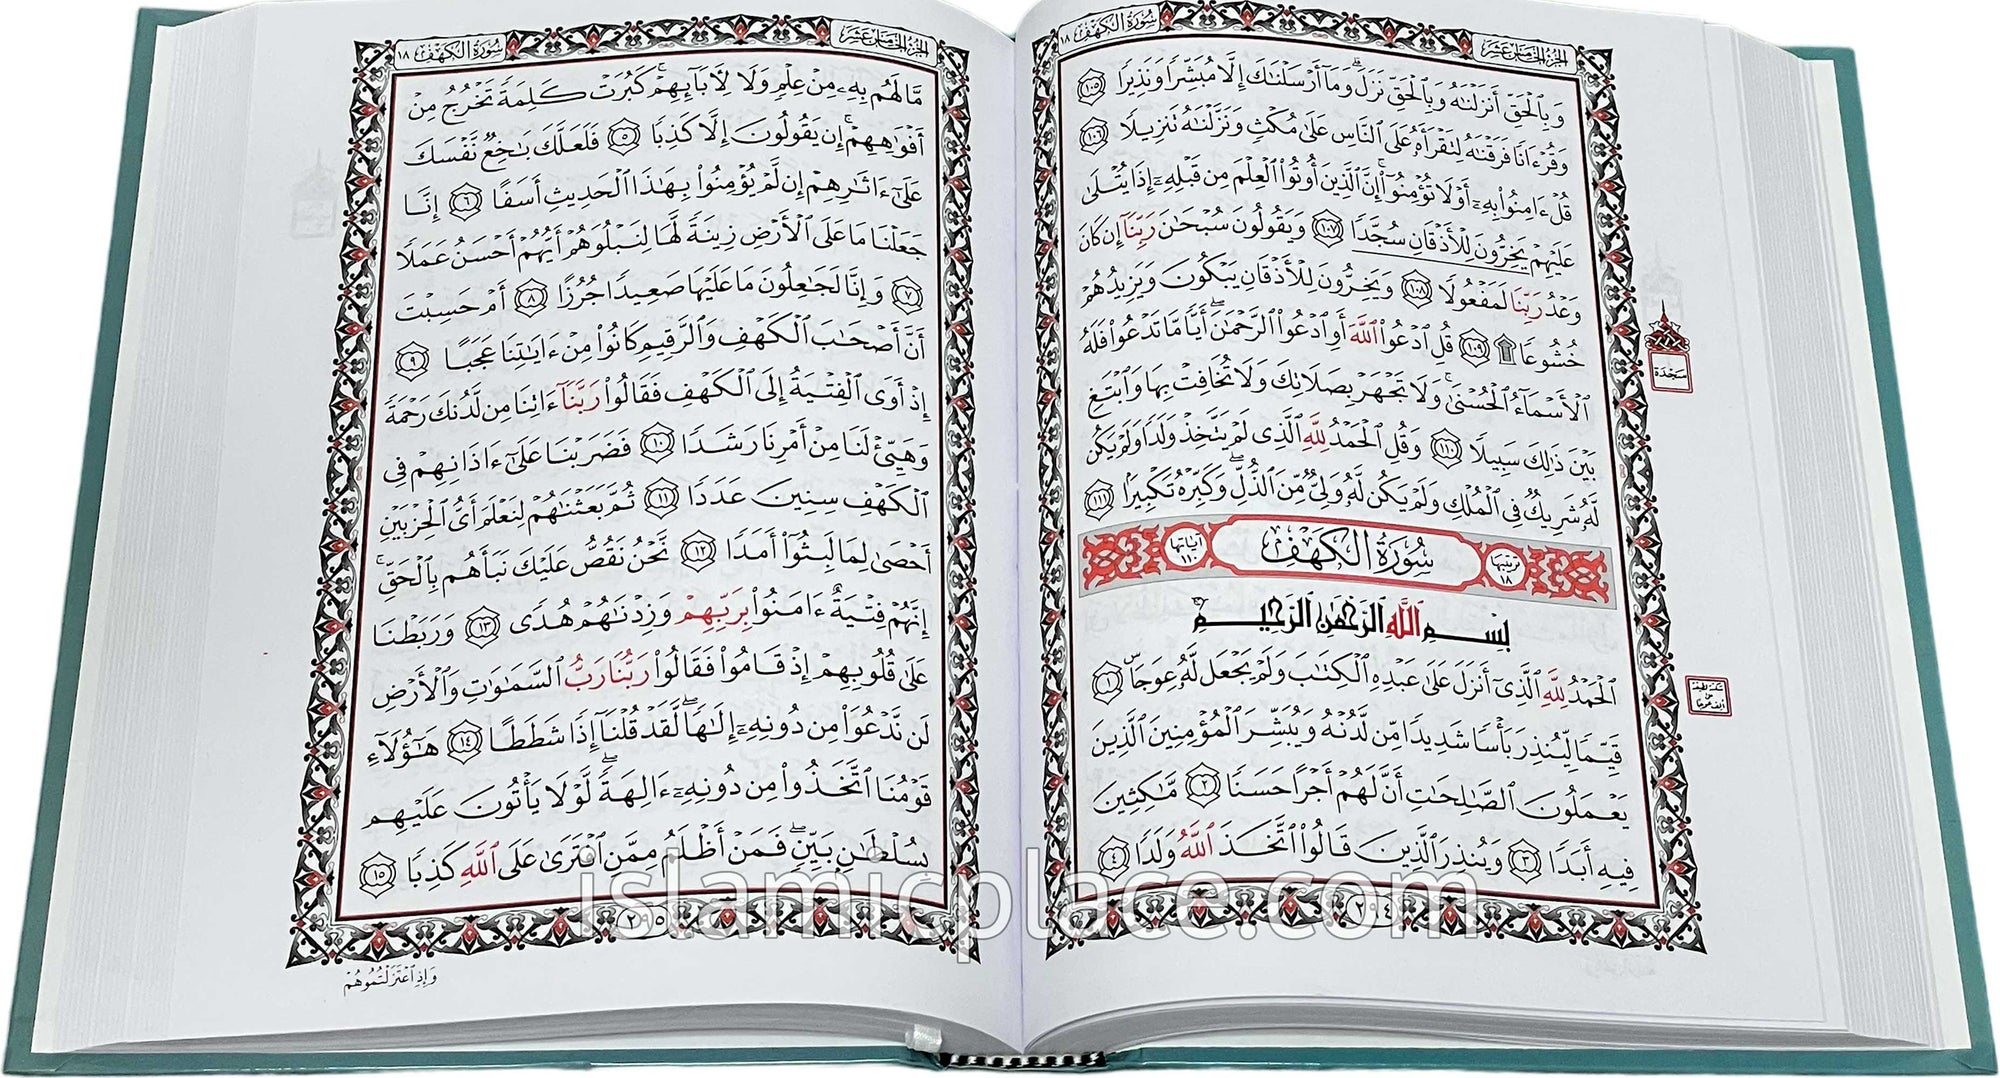 سُورَةُ الكَهْفِ ١٨
الجُزْءُ الخَامِسُ عَشَرَ
وَبِٱلْحَقِّ أَنزَلْنَٰهُ وَبِٱلْحَقِّ نَزَلَ ۗ وَمَآ أَرْسَلْنَٰكَ إِلَّا مُبَشِّرًا وَنَذِيرًا ١٠٥
وَقُرْءَانًا فَرَقْنَٰهُ لِتَقْرَأَهُۥ عَلَى ٱلنَّاسِ عَلَىٰ مُكْثٍ وَنَزَّلْنَٰهُ تَنزِيلًا ١٠٦
قُلْ ءَامِنُوا۟ بِهِۦٓ أَوْ لَا تُؤْمِنُوٓا۟ ۚ إِنَّ ٱلَّذِينَ أُوتُوا۟ ٱلْعِلْمَ مِن قَبْلِهِۦٓ إِذَا يُتْلَىٰ
عَلَيْهِمْ يَخِرُّونَ لِلْأَذْقَانِ سُجَّدًا ١٠٧ وَيَقُولُونَ سُبْحَٰنَ رَبِّنَآ إِن كَانَ
وَعْدُ رَبِّنَا لَمَفْعُولًا ١٠٨ وَيَخِرُّونَ لِلْأَذْقَانِ يَبْكُونَ وَيَزِيدُهُمْ
خُشُوعًا ۩ ١٠٩ قُلِ ٱدْعُوا۟ ٱللَّهَ أَوِ ٱدْعُوا۟ ٱلرَّحْمَٰنَ ۖ أَيًّا مَّا تَدْعُوا۟ فَلَهُ
ٱلْأَسْمَآءُ ٱلْحُسْنَىٰ ۚ وَلَا تَجْهَرْ بِصَلَاتِكَ وَلَا تُخَافِتْ بِهَا وَٱبْتَغِ
بَيْنَ ذَٰلِكَ سَبِيلًا ١١٠ وَقُلِ ٱلْحَمْدُ لِلَّهِ ٱلَّذِى لَمْ يَتَّخِذْ وَلَدًا وَلَمْ يَكُن
لَّهُۥ شَرِيكٌ فِى ٱلْمُلْكِ وَلَمْ يَكُن لَّهُۥ وَلِىٌّ مِّنَ ٱلذُّلِّ ۖ وَكَبِّرْهُ تَكْبِيرًۢا ١١١
ترتيبها ١٨ سُورَةُ الكَهْفِ آياتها ١١٠
بِسْمِ ٱللَّهِ ٱلرَّحْمَٰنِ ٱلرَّحِيمِ
ٱلْحَمْدُ لِلَّهِ ٱلَّذِىٓ أَنزَلَ عَلَىٰ عَبْدِهِ ٱلْكِتَٰبَ وَلَمْ يَجْعَل لَّهُۥ عِوَجَا ۜ ١
قَيِّمًا لِّيُنذِرَ بَأْسًا شَدِيدًا مِّن لَّدُنْهُ وَيُبَشِّرَ ٱلْمُؤْمِنِينَ ٱلَّذِينَ
يَعْمَلُونَ ٱلصَّٰلِحَٰتِ أَنَّ لَهُمْ أَجْرًا حَسَنًا ٢ مَّٰكِثِينَ
فِيهِ أَبَدًا ٣ وَيُنذِرَ ٱلَّذِينَ قَالُوا۟ ٱتَّخَذَ ٱللَّهُ وَلَدًا ٤
٢٩٤
سَجْدَة
سورة الكهف ١٨
الجزء الخامس عشر
مَّا لَهُم بِهِۦ مِنْ عِلْمٍ وَلَا لِـَٔابَآئِهِمْ ۚ كَبُرَتْ كَلِمَةً تَخْرُجُ مِنْ
أَفْوَٰهِهِمْ ۚ إِن يَقُولُونَ إِلَّا كَذِبًا ٥ فَلَعَلَّكَ بَٰخِعٌ نَّفْسَكَ
عَلَىٰٓ ءَاثَٰرِهِمْ إِن لَّمْ يُؤْمِنُوا۟ بِهَٰذَا ٱلْحَدِيثِ أَسَفًا ٦ إِنَّا
جَعَلْنَا مَا عَلَى ٱلْأَرْضِ زِينَةً لَّهَا لِنَبْلُوَهُمْ أَيُّهُمْ أَحْسَنُ عَمَلًا
٧ وَإِنَّا لَجَٰعِلُونَ مَا عَلَيْهَا صَعِيدًا جُرُزًا ٨ أَمْ حَسِبْتَ
أَنَّ أَصْحَٰبَ ٱلْكَهْفِ وَٱلرَّقِيمِ كَانُوا۟ مِنْ ءَايَٰتِنَا عَجَبًا ٩
إِذْ أَوَى ٱلْفِتْيَةُ إِلَى ٱلْكَهْفِ فَقَالُوا۟ رَبَّنَآ ءَاتِنَا مِن لَّدُنكَ رَحْمَةً
وَهَيِّئْ لَنَا مِنْ أَمْرِنَا رَشَدًا ١٠ فَضَرَبْنَا عَلَىٰٓ ءَاذَانِهِمْ فِى
ٱلْكَهْفِ سِنِينَ عَدَدًا ١١ ثُمَّ بَعَثْنَٰهُمْ لِنَعْلَمَ أَىُّ ٱلْحِزْبَيْنِ
أَحْصَىٰ لِمَا لَبِثُوٓا۟ أَمَدًا ١٢ نَّحْنُ نَقُصُّ عَلَيْكَ نَبَأَهُم بِٱلْحَقِّ ۚ
إِنَّهُمْ فِتْيَةٌ ءَامَنُوا۟ بِرَبِّهِمْ وَزِدْنَٰهُمْ هُدًى ١٣ وَرَبَطْنَا
عَلَىٰ قُلُوبِهِمْ إِذْ قَامُوا۟ فَقَالُوا۟ رَبُّنَا رَبُّ ٱلسَّمَٰوَٰتِ وَٱلْأَرْضِ
لَن نَّدْعُوَا۟ مِن دُونِهِۦٓ إِلَٰهًا ۖ لَّقَدْ قُلْنَآ إِذًا شَطَطًا ١٤ هَٰٓؤُلَآءِ
قَوْمُنَا ٱتَّخَذُوا۟ مِن دُونِهِۦٓ ءَالِهَةً ۖ لَّوْلَا يَأْتُونَ عَلَيْهِم
بِسُلْطَٰنٍۭ بَيِّنٍ ۖ فَمَنْ أَظْلَمُ مِمَّنِ ٱفْتَرَىٰ عَلَى ٱللَّهِ كَذِبًا ١٥
٢٩٥
وَإِذِ ٱعْتَزَلْتُمُوهُمْ
islamicplace.com